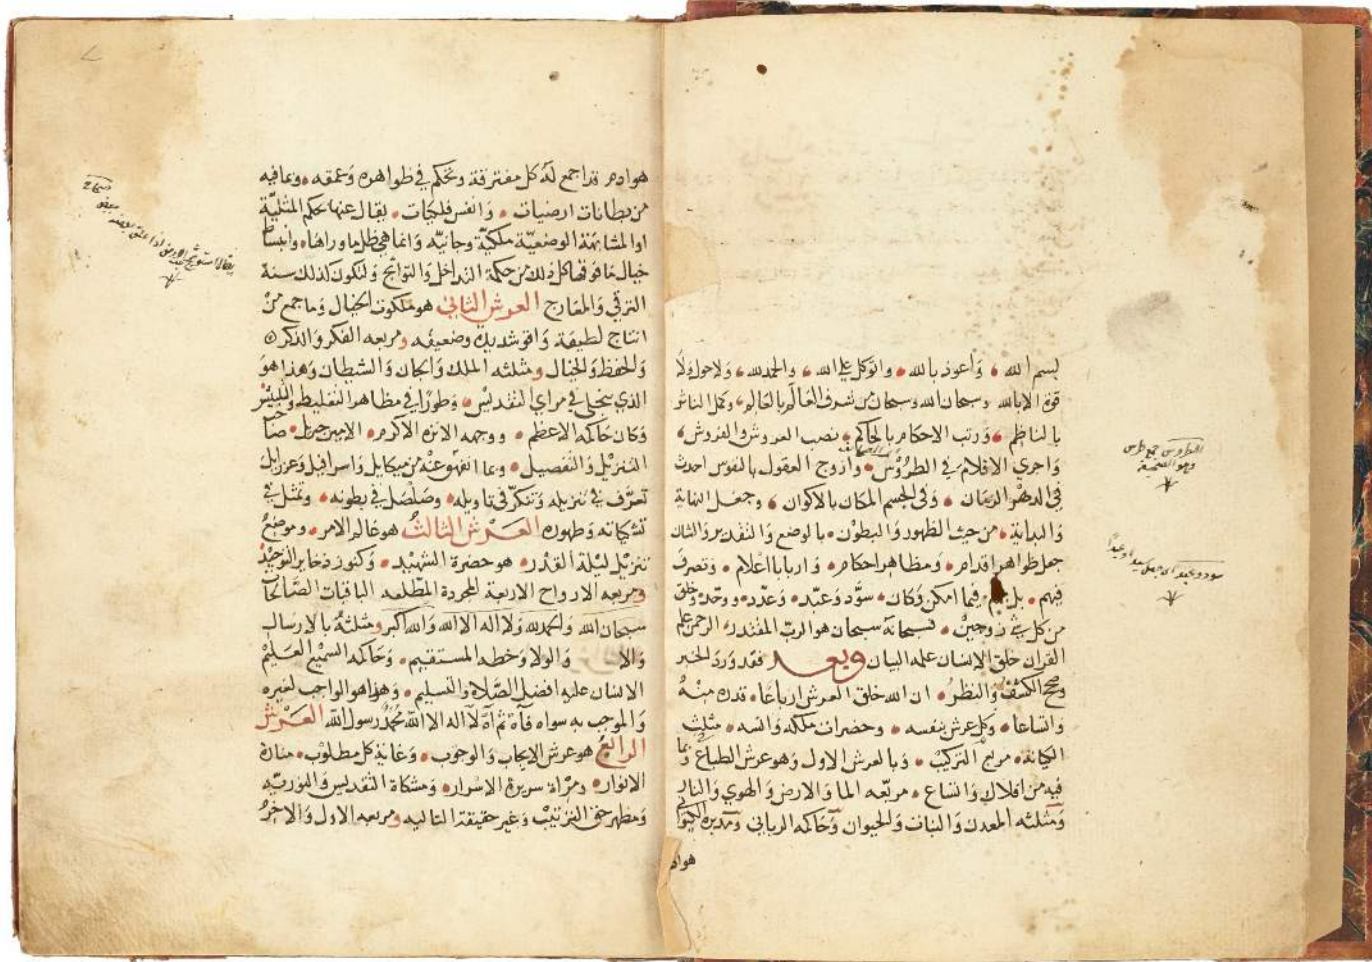 بسم الله وأعوذ بالله والتوكل على الله والحمد لله ولا حول ولا
قوة الا بالله وسبحان الله وسبحان من شرف العالم بالعالم وكمل الناثر
بالناظم ورتب الاحكام بالحاكم نصب العروش والفروش
واجري الاقلام في الطروس وازوج العقول بالنفوس احدث
في الدهر الزمان وفي الجسم المكان بالاكوان وجعل النهاية
والبداية من حيث الظهور والبطون بالوضع والتقدير والشان
جعل ظواهر اقدام ومظاهر احكام واربابا اعلام وتصرف
فيهم بل بهم فيما امكن وكان سود وعبد وعدد ووحد وخلق
من كل شي زوجين فسبحانه سبحان هو الرب المقتدر الرحمن علم
القران خلق الانسان علمه البيان وبعد فقد ورد الخبر
وصح الكشف والنظر ان الله خلق العرش ارباعا قدره منه
واتساعا وكل عرش بنفسه وحضرات ملكه وانسه مثلث
الكيانة مربع التركيب وبالعرش الاول وهو عرش الطباع وما
فيه من افلاك واتساع مربعه الما والارض والهوي والنار
ومثلثه المعدن والنبات والحيوان وحاكمه الرباني ومديره
هوادم
الطروس جمع طرس
وهو الصحيفة
هوادم قد اجمع له كل مفترقة وتحكم في ظواهره وعمقه وما فيه
من بطانات ارضيات وانفس فلكيات يقال عنها حكم المثلية
او المشابهة الوضعية ملكية وجانية وانما هي ظل ما وراها وانبساط
خيال ما فوقها كل ذلك من حكمة التداخل والتوالج ولتكون لذلك سنة
الترقي والمعارج العرش الثاني هو ملكوت الخيال وما جمع من
انتاج لطيفة واقو شديده وضعيفه ومربعه الفكر والذكر
والحفظ والخيال ومثلثه الملك والجان والشيطان وهذا هو
الذي يتجلى في مراي التقديس وطورا في مظاهر التغليط والتلبيس
وكان حاكمه الاعظم ووجهه الانزه الاكرم الامين جبريل صاحب
التنزيل والتفصيل وما انفهق عنه من ميكايل واسرافيل وعزرايل
تعرف في تنزيله وتنكر في تاويله وصلصل في بطونه وتمثل في
تشكيلاته وظهوره العرش الثالث هو عالم الامر وموضع
تنزيل ليلة القدر هو حضرة الشهيد وكنوز ذخاير التوحيد
ومربعه الارواح الاربعة المجردة المطلعه الباقيات الصالحات
سبحان الله والحمد لله ولا اله الا الله والله اكبر ومثلثه بالارسال
والولا وخطه المستقيم وحاكمه السميع العليم
الانسان عليه افضل الصلاة والتسليم وهو الواجب لغيره
والموجب به سواه لا اله الا الله محمد رسول الله العرش
الرابع هو عرش الايجاب والوجوب وغاية كل مطلوب منارة
الانوار ومراة سريرة الاسرار ومشكاة التقديس
ومظهر حق الترتيب وغير حقيقة التاليه ومربعه الاول والاخر